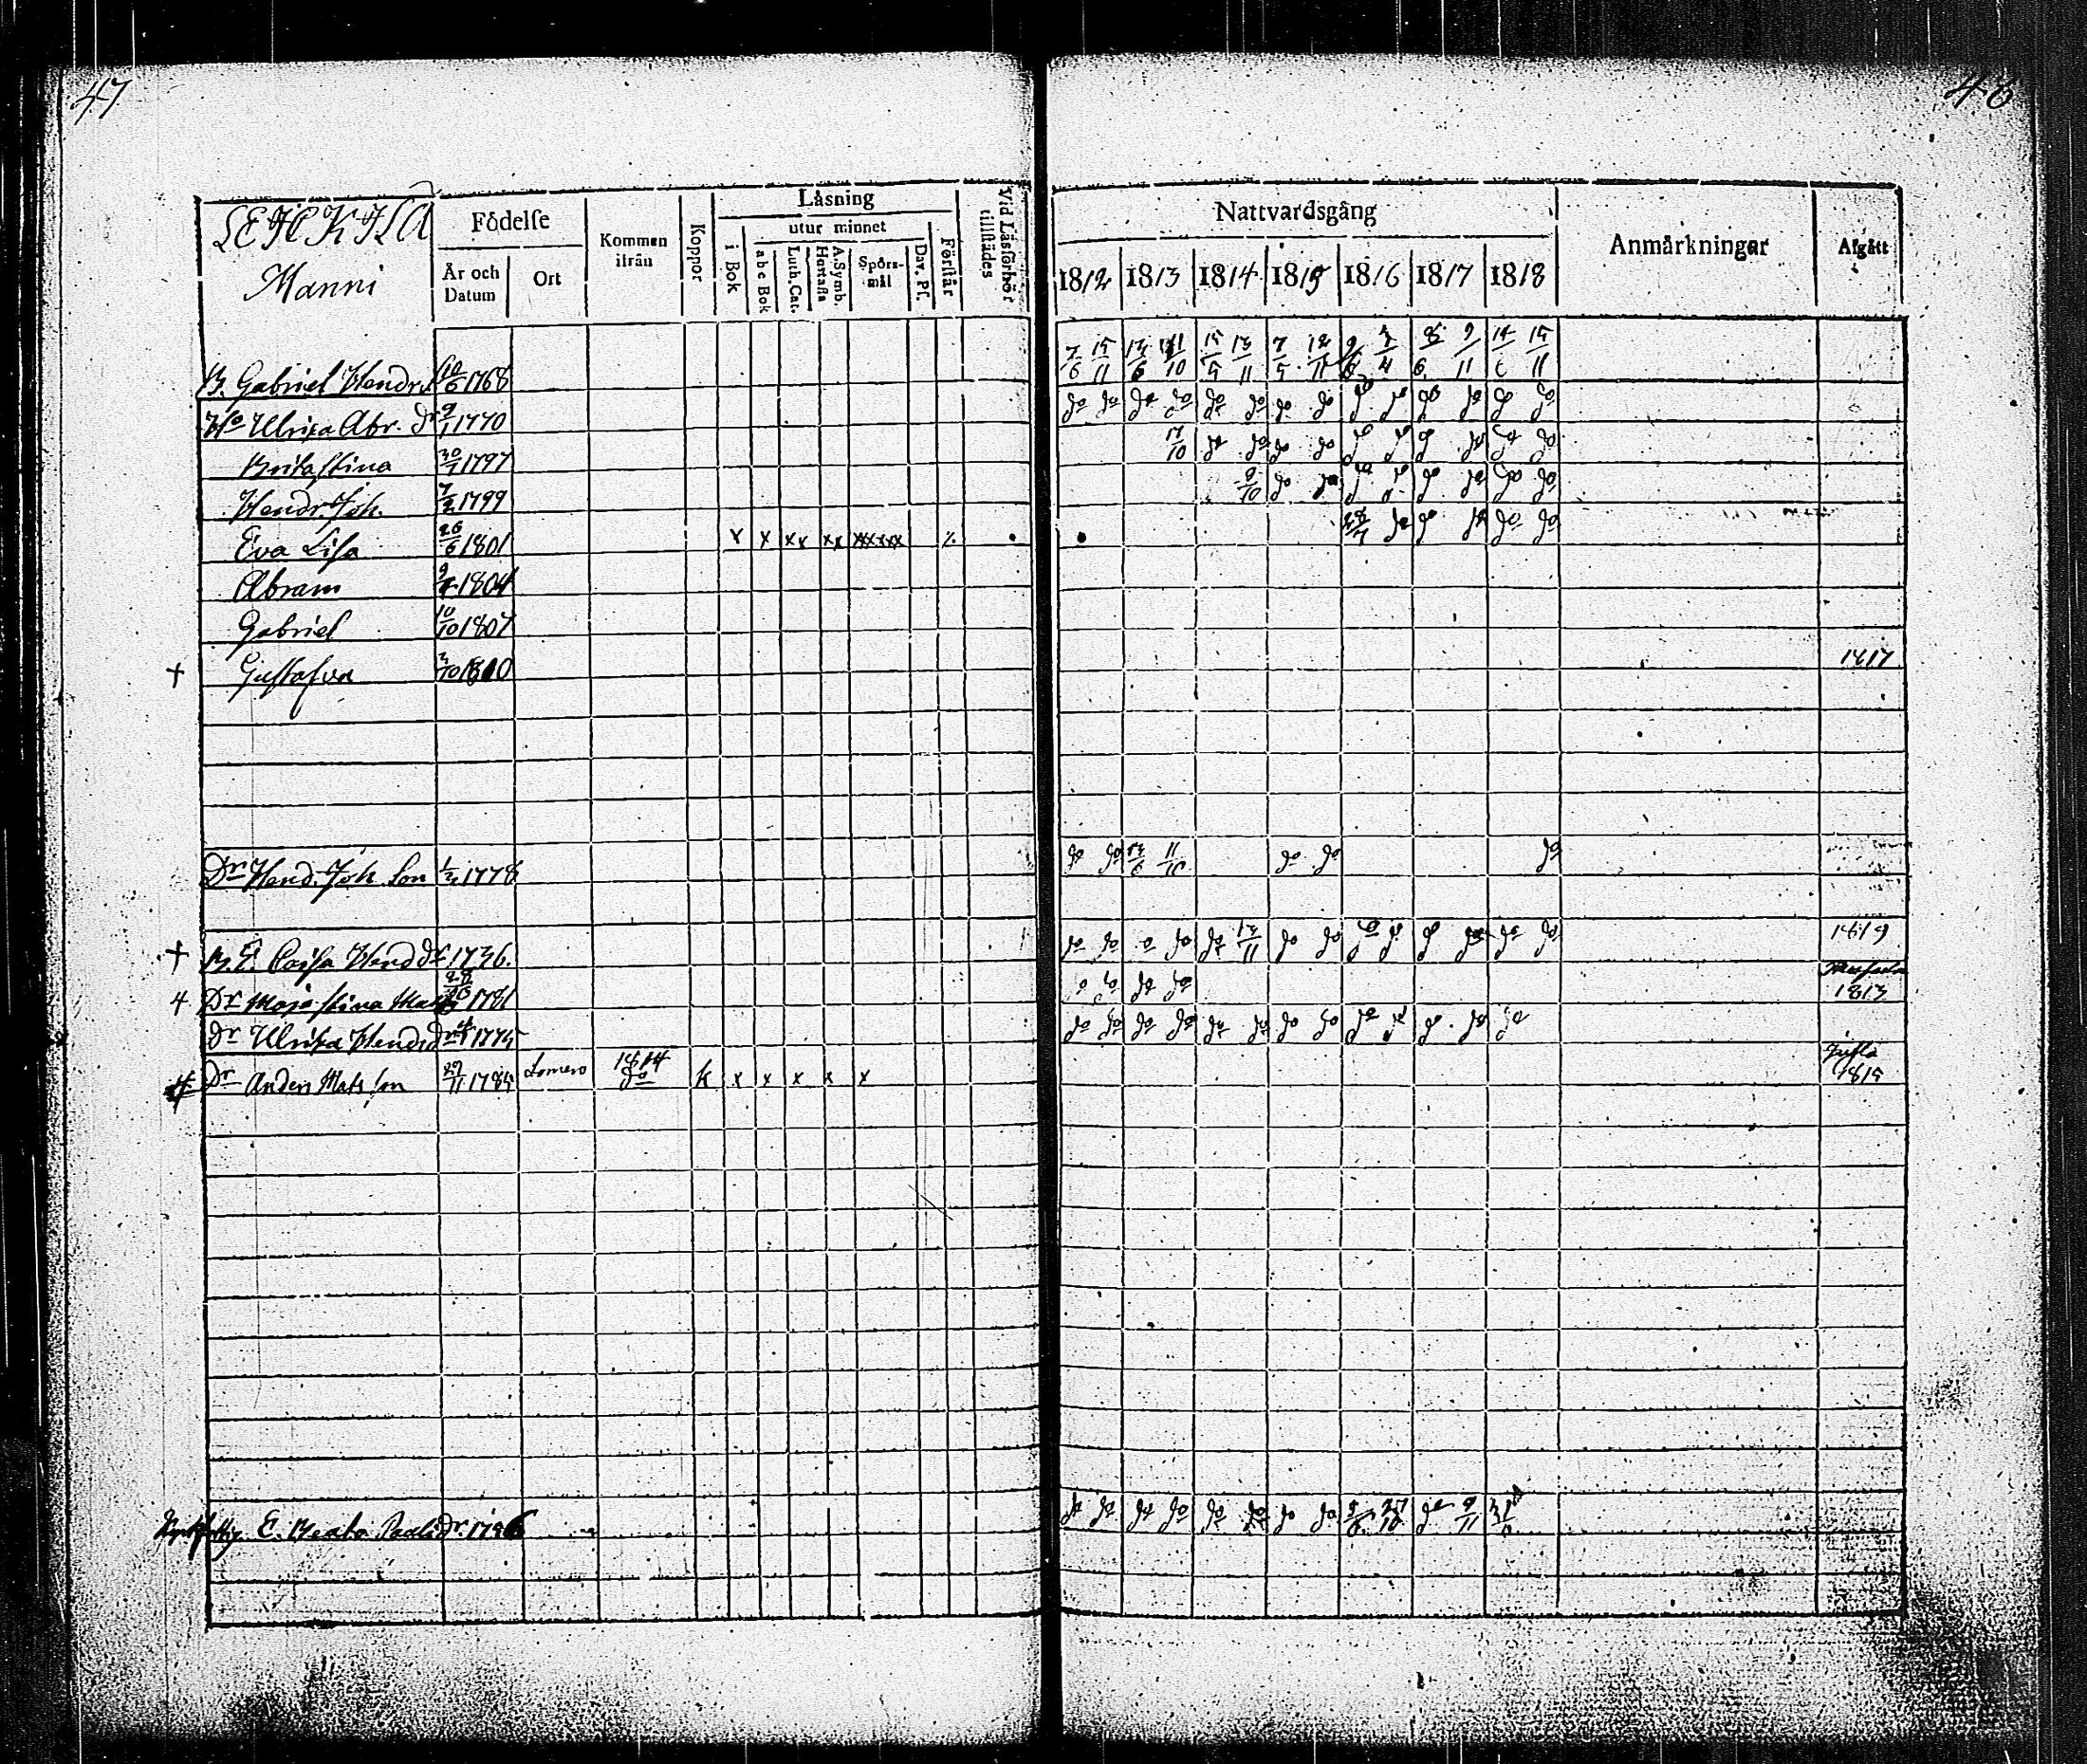 47
48
LEHKILÄ
Manni
Födelse
År och Datum
Ort
Kommen ifrån
Koppor
Läsning
utur minnet
i Bok
a b c Bok
Luth. Cat.
A. Symb. Hustafla
Spörsmål
Dav. Ps.
Förstår
Vid Läsförhör tillstädes
Nattvardsgång
1812 1813 1814 1815 1816 1817 1818
Anmärkningar
Afgått
B. Gabriel Hendr. 10/6 1768 7/6 15/11 13/6 11/10 15/5 13/11 7/5 12/11
H:o Ulrika Abr. dr 9/1 1770 do do do do do do do do do do do do do do
Brita Stina 30/1 1797 17/10 do do do do do do do do do do
Hendr. Joh. 7/2 1799 9/10 do do do do do do do do
Eva Lisa 26/6 1801 x x xx xx xxxxx 28/7 do do do do do
Abram 1804
Gabriel 10/10 1807
+ Gustafva 3/10 1810 1817
Dr Hend. Joh. Son 1/2 1778 do do 13/6 11/10 do do do
+ B. E. Caisa Hend dr 1736. do do do do do 13/11 do do do do do do do do 1819
4 Dr Maja Stina 1781 do do do 1813
Dr Ulrika Hends dr 1775 do do do do do do do do do do do do do
Dr Anders Mats son 29/11 1785 Somero 1814 do k x x x x x 1815
E. Beata 1796 do do do do do do do do do 9/11